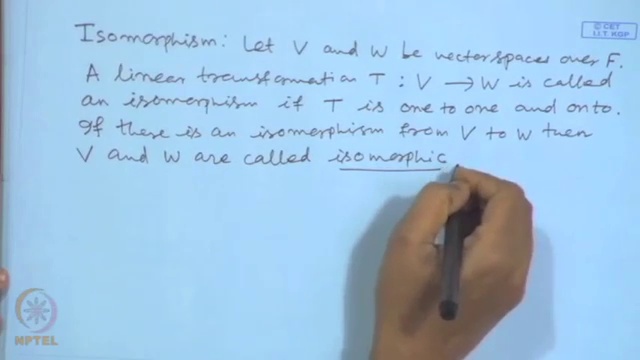 © CET
I.I.T. KGP
Isomorphism: Let V and W be vector spaces over F.
A linear transformation T : V → W is called
an isomorphism if T is one to one and onto.
If there is an isomorphism from V to W then
V and W are called isomorphic
NPTEL